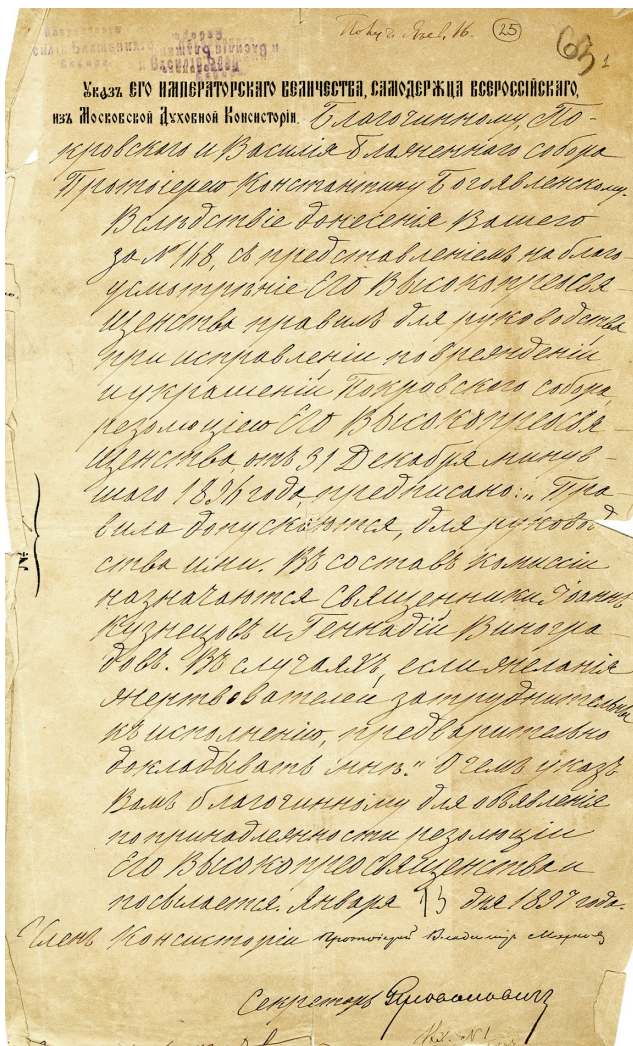 Янв. 16. 25
1
Указъ ЕГО ИМПЕРАТОРСКАГО ВЕЛИЧЕСТВА, САМОДЕРЖЦА ВСЕРОССІЙСКАГО,
изъ Московской Духовной Консисторіи. Благочинному, По-
кровскаго и Василія блаженнаго собора
Протоіерею Константину Богоявленскому.
Вслѣдствіе донесенія Вашего
за № 168, съ представленіемъ на благо-
усмотрѣніе Его Высокопреосвя-
щенства правилъ для руководства
при исправленіи поврежденій
и украшеніи Покровскаго собора,
резолюціею Его Высокопреосвя-
щенства, отъ 31 Декабря минув-
шаго 1896 года, предписано: „Пра-
вила допускаются, для руковод
ства ими. Въ составъ комиссіи
назначаются священники Іоаннъ
Кузнецовъ и Геннадій Виногра-
довъ. Въ случаяхъ, если желанія
жертвователей затруднительны
къ исполненію, предварительно
докладывать мнѣ." О чемъ указъ
Вамъ благочинному для объявленія
по принадлежности резолюціи
Его Высокопреосвященства и
посылается. Января 13 дня 1897 года.
Членъ Консисторіи Протоіерей Владиміръ
Секретарь
№ 1